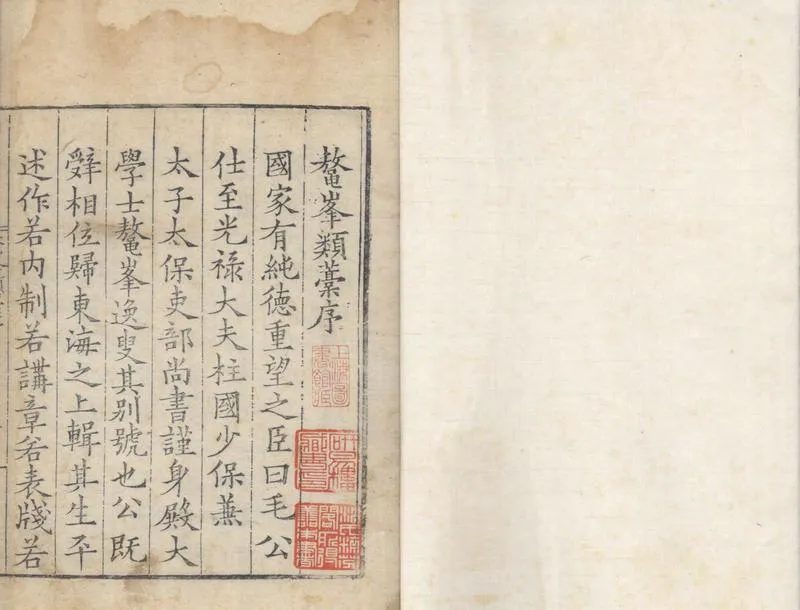 鼇峯類藁序
國家有純德重望之臣曰毛公
仕至光祿大夫柱國少保兼
太子太保吏部尚書謹身殿大
學士鼇峯逸叟其別號也公既
辭相位歸東海之上輯其生平
述作若內制若講章若表牋若
上海圖
書館藏